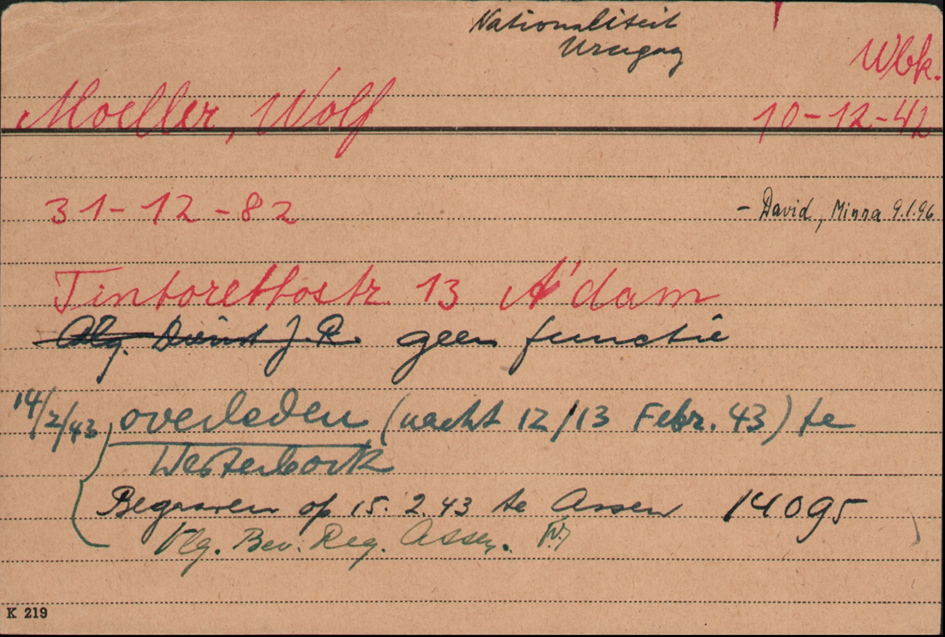 Nationaliteit
Urugay
Wbk.
Moeller, Wolf
10-12-42
31-12-82
- David, Minna 9.1.96
Tintorettostr. 13 A'dam
Alg. Dienst J.R. geen functie
14/2/43, overleden (nacht 12/13 Febr. 43) te
Westerbork
Begraven op 15.2.43 te Assen 14095
Vlg. Bev. Reg. Assen.
K 219